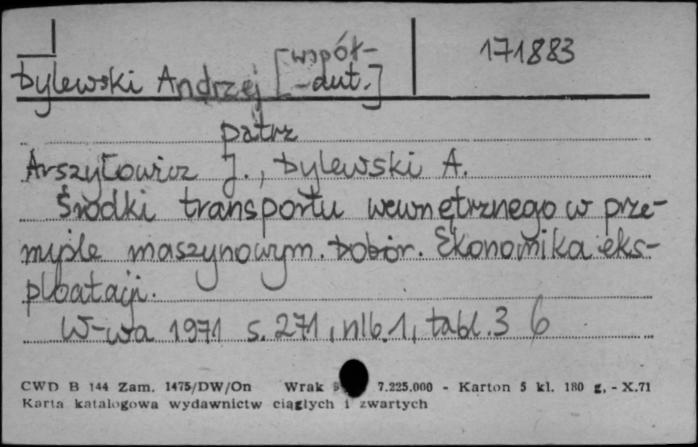 171883
Dylewski Andrzej [współ-
-aut.]
patrz
Arszyłowicz J., Dylewski A.
Środki transportu wewnętrznego w prze-
myśle maszynowym. Dobór. Ekonomika eks-
ploatacji.
W-wa 1971 s. 271, nlb. 1, tabl. 3 6
CWD B 144 Zam. 1475/DW/On Wrak 7.225.000 - Karton 5 kl. 180 g, - X.71
Karta katalogowa wydawnictw ciągłych i zwartych